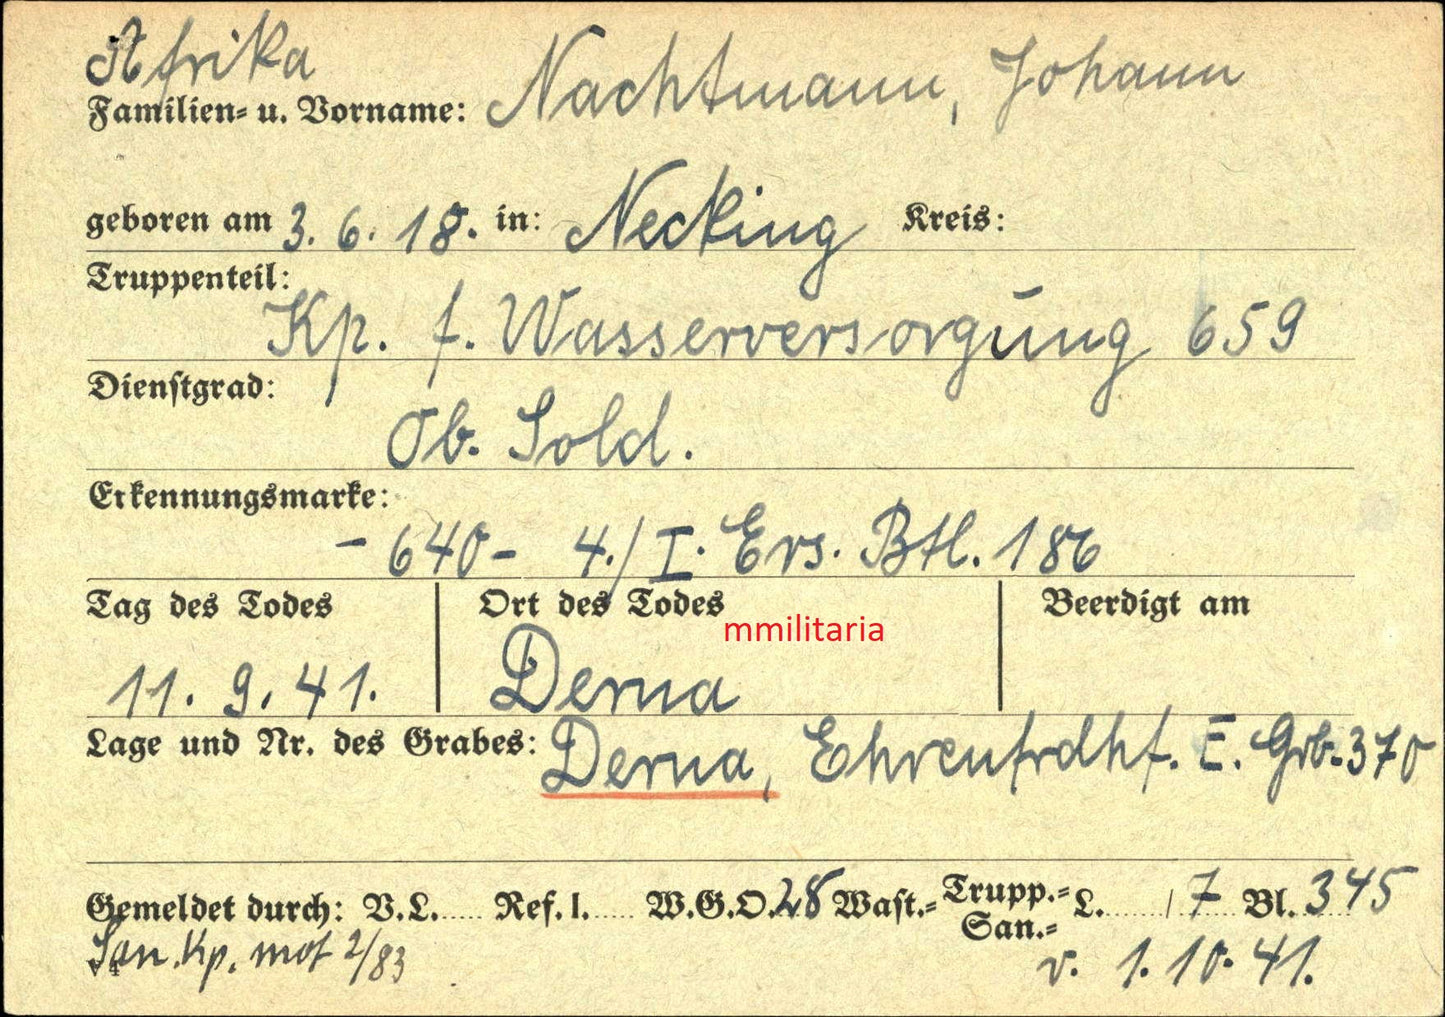 Afrika
Familien- u. Vorname: Nachtmann, Johann
geboren am 3. 6. 18. in: Necking Kreis:
Truppenteil:
Kp. f. Wasserversorgung 659
Dienstgrad:
Ob. Sold.
Erkennungsmarke:
- 640 - 4./I. Ers. Btl. 186
Tag des Todes Ort des Todes Beerdigt am
mmilitaria
11. 9. 41. Derna
Lage und Nr. des Grabes: Derna, Ehrenfrdhf. E. Grb. 370
Gemeldet durch: V.L. Ref. I. W.G.O. 28 Wast.= Trupp.= San.= L. / 7 Bl. 345
San. Kp. mot 2/83 v. 1. 10. 41.